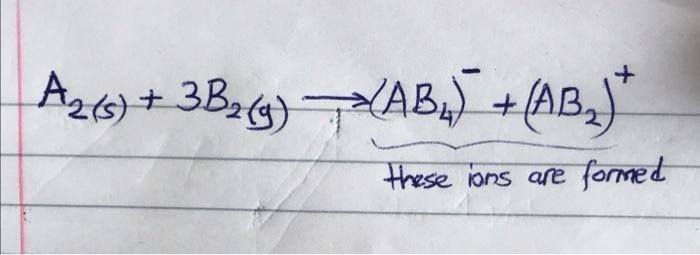 A₂(s) + 3B₂(g) → (AB₄)⁻ + (AB₂)⁺
these ions are formed